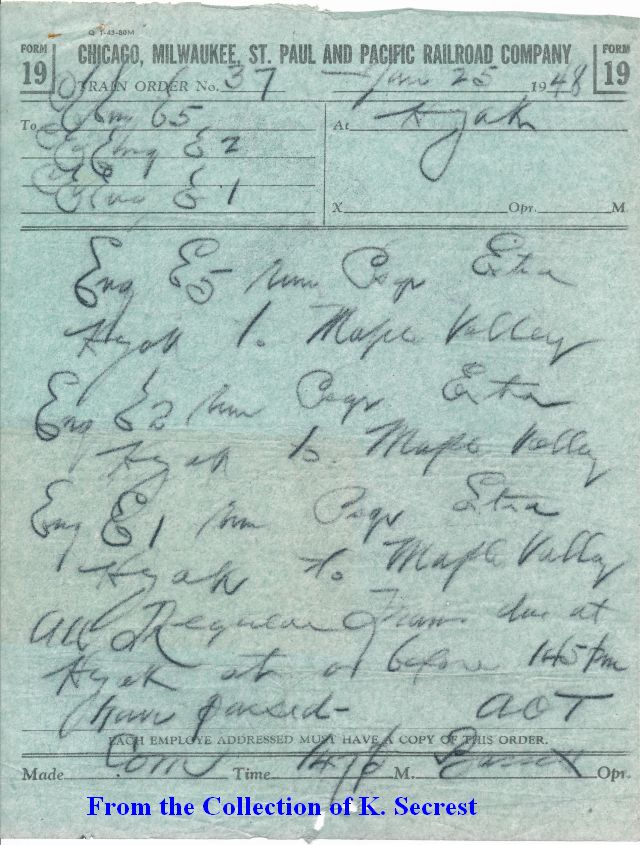 Q 1-43-80M
FORM 19 CHICAGO, MILWAUKEE, ST. PAUL AND PACIFIC RAILROAD COMPANY FORM 19
TRAIN ORDER No. 37 Jan 25 1948
To Eng E5 At Hyak
Eng E2
Eng E1
X Opr. M
Eng E5 run Psgr Extra
Hyak to Maple Valley
Eng E2 run Psgr Extra
Hyak to Maple Valley
Eng E1 run Psgr Extra
Hyak to Maple Valley
All Regular Trains due at
Hyak at or before 145 pm
have passed- AOT
EACH EMPLOYE ADDRESSED MUST HAVE A COPY OF THIS ORDER.
Made Com Time M. Opr.
From the Collection of K. Secrest